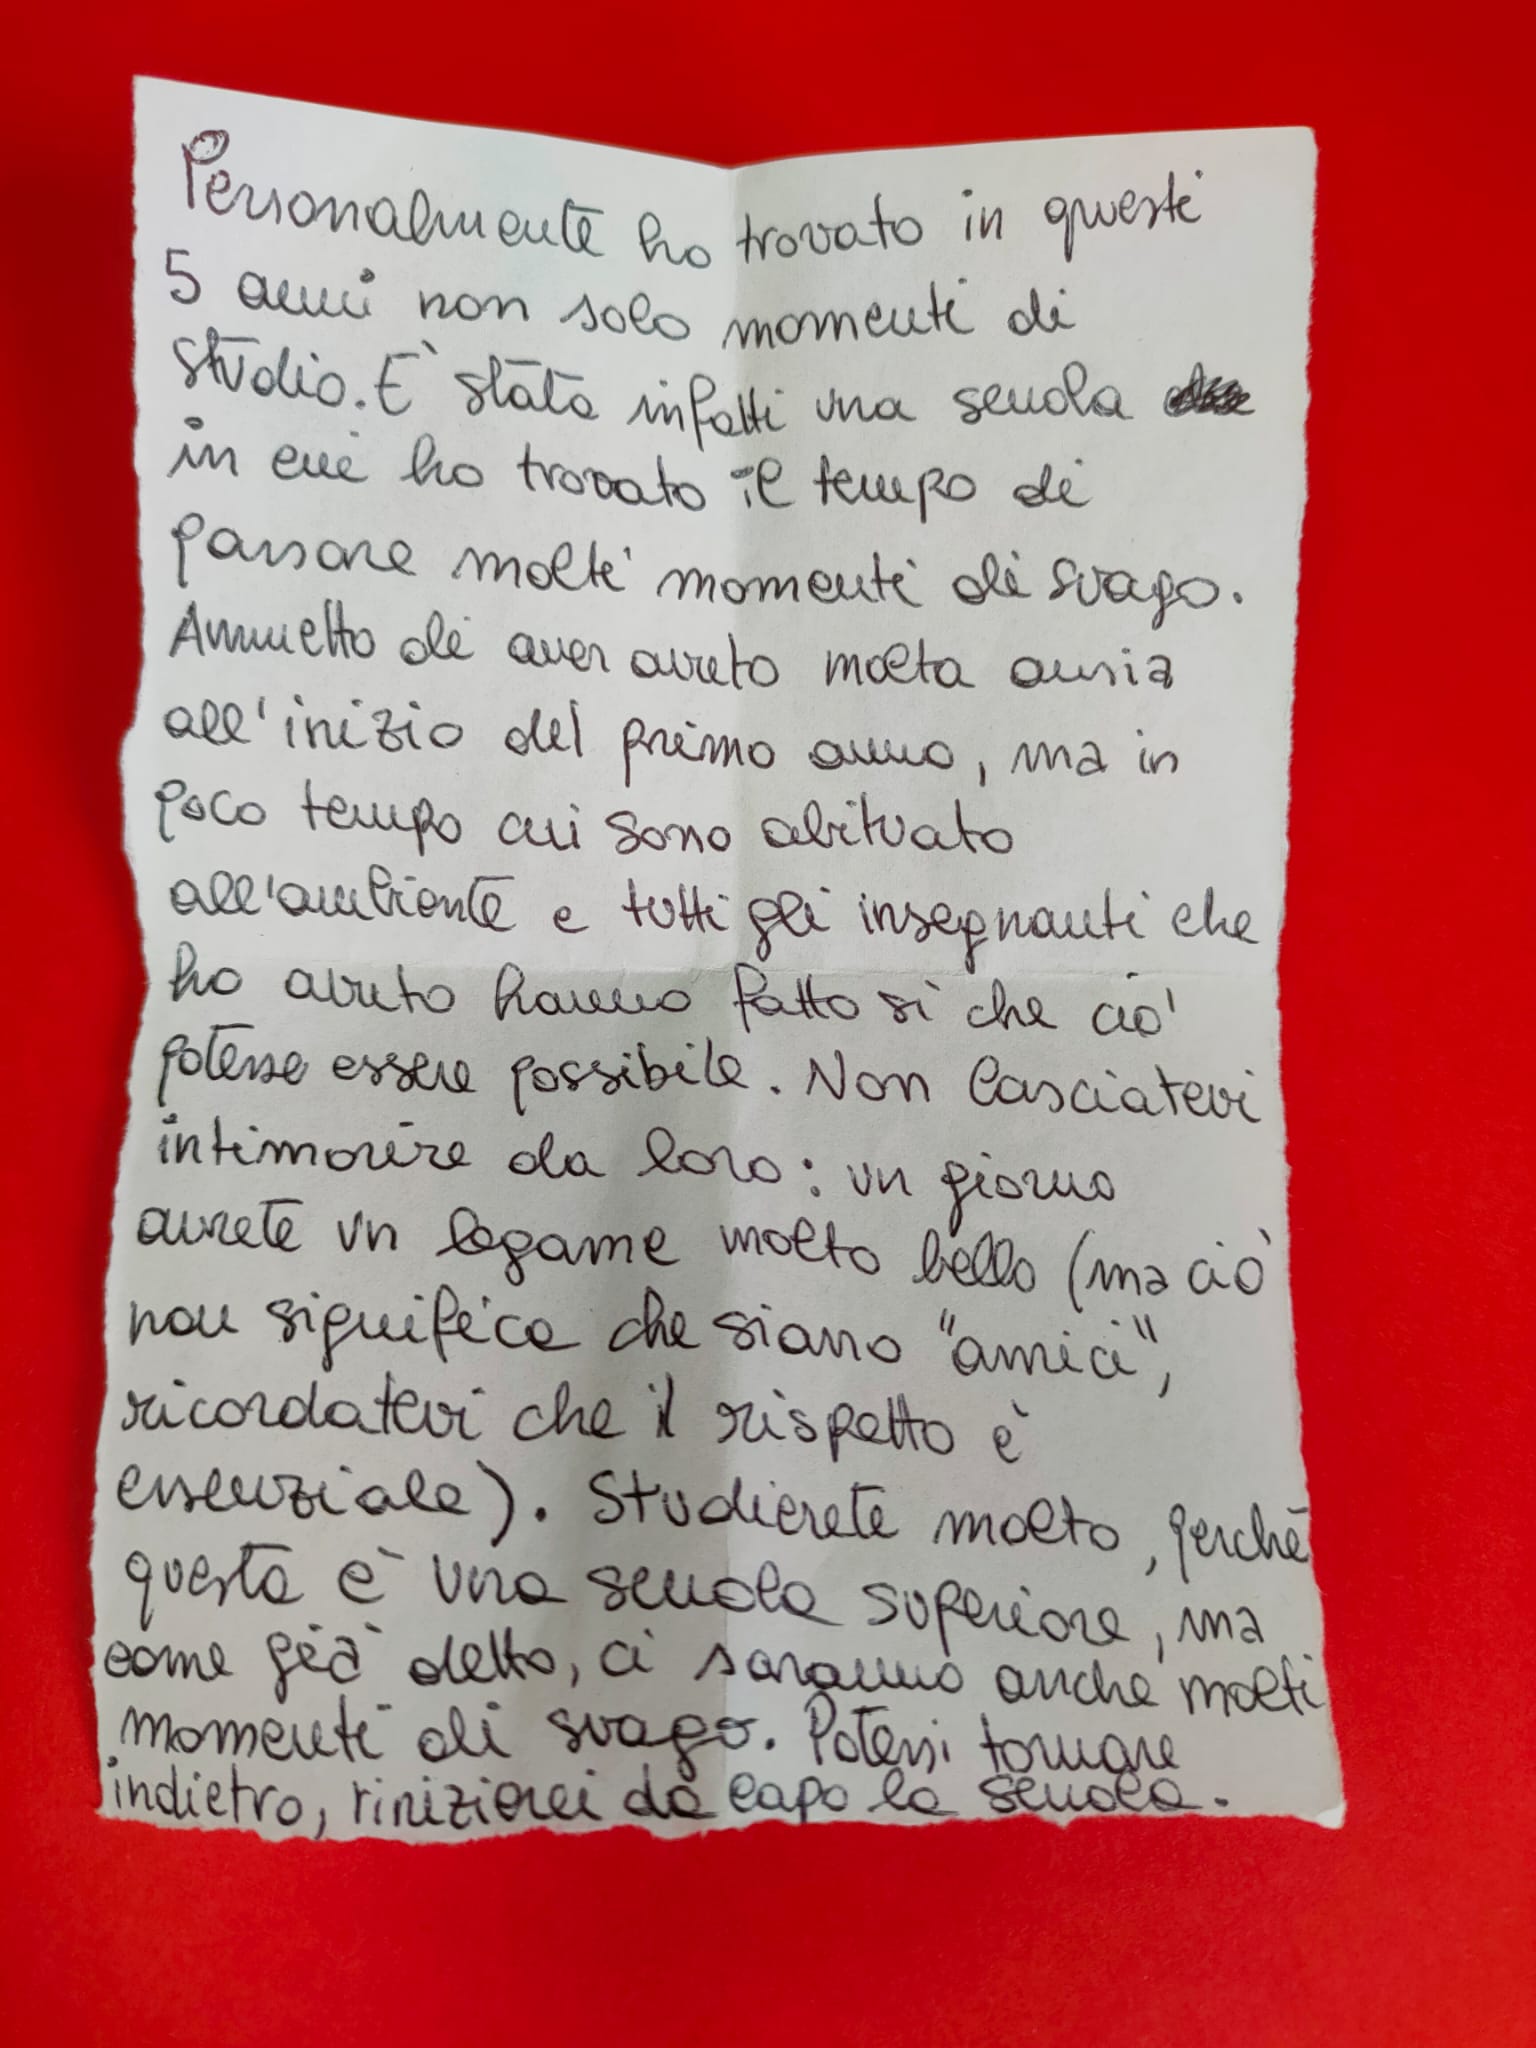 Personalmente ho trovato in questi
5 anni non solo momenti di
studio. E' stata infatti una scuola
in cui ho trovato il tempo di
passare molti momenti di svago.
Ammetto di aver avuto molta ansia
all'inizio del primo anno, ma in
poco tempo mi sono abituato
all'ambiente e tutti gli insegnanti che
ho avuto hanno fatto sì che ciò
potesse essere possibile. Non lasciatevi
intimorire da loro: un giorno
avrete un legame molto bello (ma ciò
non significa che siano "amici",
ricordatevi che il rispetto è
essenziale). Studierete molto, perché
questa è una scuola superiore, ma
come già detto, ci saranno anche molti
momenti di svago. Potessi tornare
indietro, rinizierei da capo la scuola.